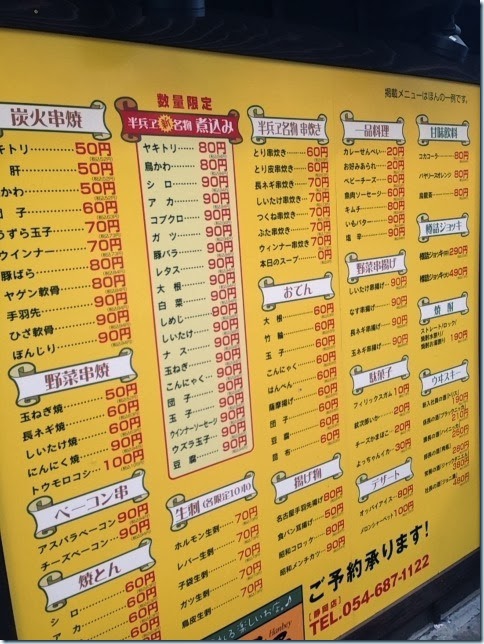 掲載メニューはほんの一例です。
炭火串焼
キトリ……50円
肝……50円
かわ……50円
団子……60円
うずら玉子……70円
ウインナー……70円
豚ばら……80円
ヤゲン軟骨……60円
手羽先……90円
ひざ軟骨……90円
ぼんじり……90円
野菜串焼
玉ねぎ焼……50円
長ネギ焼……60円
しいたけ焼……90円
にんにく焼……90円
トウモロコシ……100円
ベーコン串
アスパラベーコン…90円
チーズベーコン……90円
焼とん
シロ……60円
アカ……60円
数量限定
半兵ヱ新名物 煮込み
ヤキトリ……80円
鳥かわ……90円
シロ……90円
アカ……90円
コブクロ……90円
ガツ……90円
豚バラ……90円
レタス……90円
大根……90円
白菜……90円
しめじ……90円
しいたけ……90円
ナス……90円
玉ねぎ……90円
こんにゃく……90円
団子……90円
玉子……90円
ウインナーソーセージ…90円
ウズラ玉子……90円
豆腐……90円
生刺(各限定10本)
ホルモン生刺……70円
レバー生刺……70円
子袋生刺……70円
ガツ生刺……70円
鳥皮生刺……70円
半兵ヱ名物 串炊き
とり串炊き……60円
とり皮串炊き……60円
長ネギ串炊き……70円
しいたけ串炊き……70円
つくね串炊き……70円
ぶた串炊き……70円
ウィンナー串炊き……70円
本日のスープ……0円
おでん
大根……60円
竹輪……60円
玉子……60円
こんにゃく……60円
はんぺん……60円
薩摩揚げ……60円
団子……60円
豆腐……60円
昆布……60円
揚げ物
名古屋手羽先揚げ…80円
食パン耳揚げ……50円
昭和コロッケ……90円
昭和メンチカツ……90円
一品料理
カレーせんべい……20円
お好みあられ……20円
ベビーチーズ……60円
魚肉ソーセージ……60円
キムチ……80円
いもバター……90円
塩辛……90円
野菜串揚げ
しいたけ串揚げ……90円
なす串揚げ……90円
長ネギ串揚げ……90円
玉ネギ串揚げ……90円
駄菓子
フィリックスガム……10円
紋次郎いか……20円
チーズかまぼこ……20円
よっちゃんイカ……30円
デザート
オッパイアイス……80円
メロンシャーベット……100円
甘味飲料
コカコーラ……80円
バヤリースオレンジ……80円
烏龍茶……80円
樽詰ジョッキ
樽詰ジョッキ(中)290円
樽詰ジョッキ(大)490円
焼酎
ストレート/ロック/
190円
ウヰスキー
ご予約承ります!
[静岡店]
TEL.054-687-1122